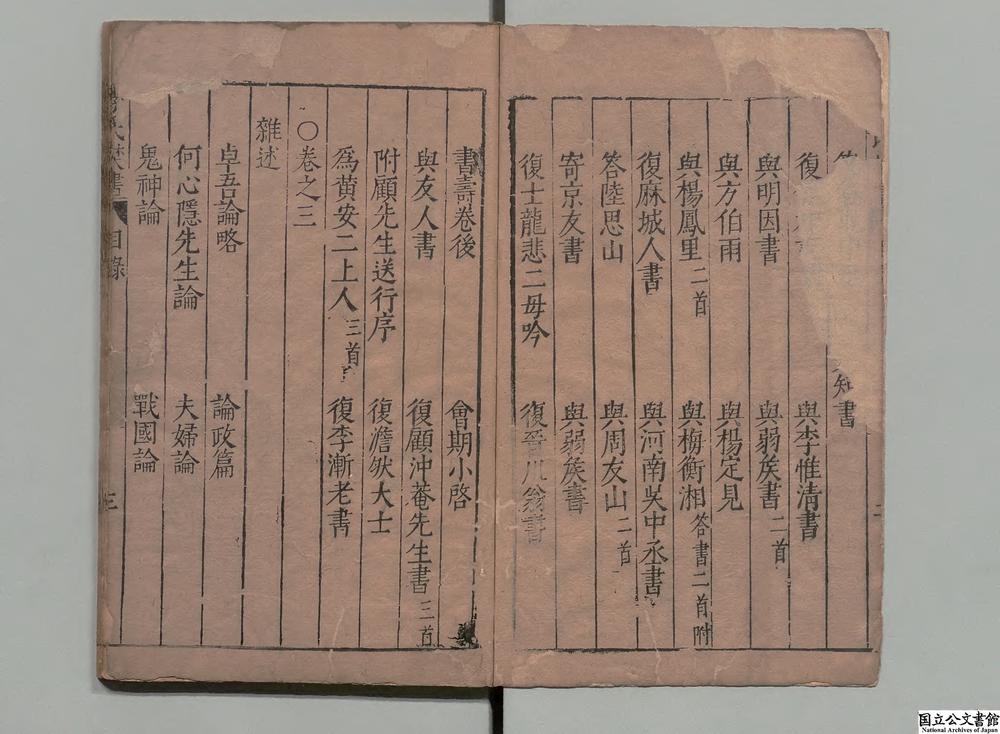 知書
復 與李惟清書
與明因書 與弱矦書二首
與方伯雨 與楊定見
與楊鳳里二首 與梅衡湘答書二首附
復麻城人書 與河南吳中丞書
答陸思山 與周友山二首
寄京友書 與弱矦書
復士龍悲二毋吟 復晉川翁書
書壽卷後 會期小啓
與友人書 復顧沖菴先生書三首
附顧先生送行序 復澹然大士
爲黃安二上人三首 復李漸老書
○卷之三
雜述
卓吾論略 論政篇
何心隱先生論 夫婦論
鬼神論 戰國論
氏焚書 目錄 三
国立公文書館
National Archives of Japan